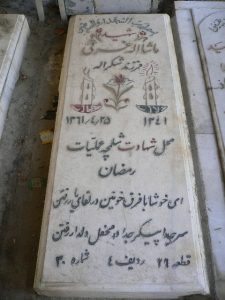 شهید
ماشااله
فرزند شکراله
۱۳۶۱/۴/۲۵ ۱۳۴۱
محل شهادت شلمچه عملیات
رمضان
ای خوشا با فرق خونین در لقای یار رفتن
سر جدا پیکر جدا در محفل دلدار رفتن
قطعه ۲۶ ردیف ۴ شماره ۳۰